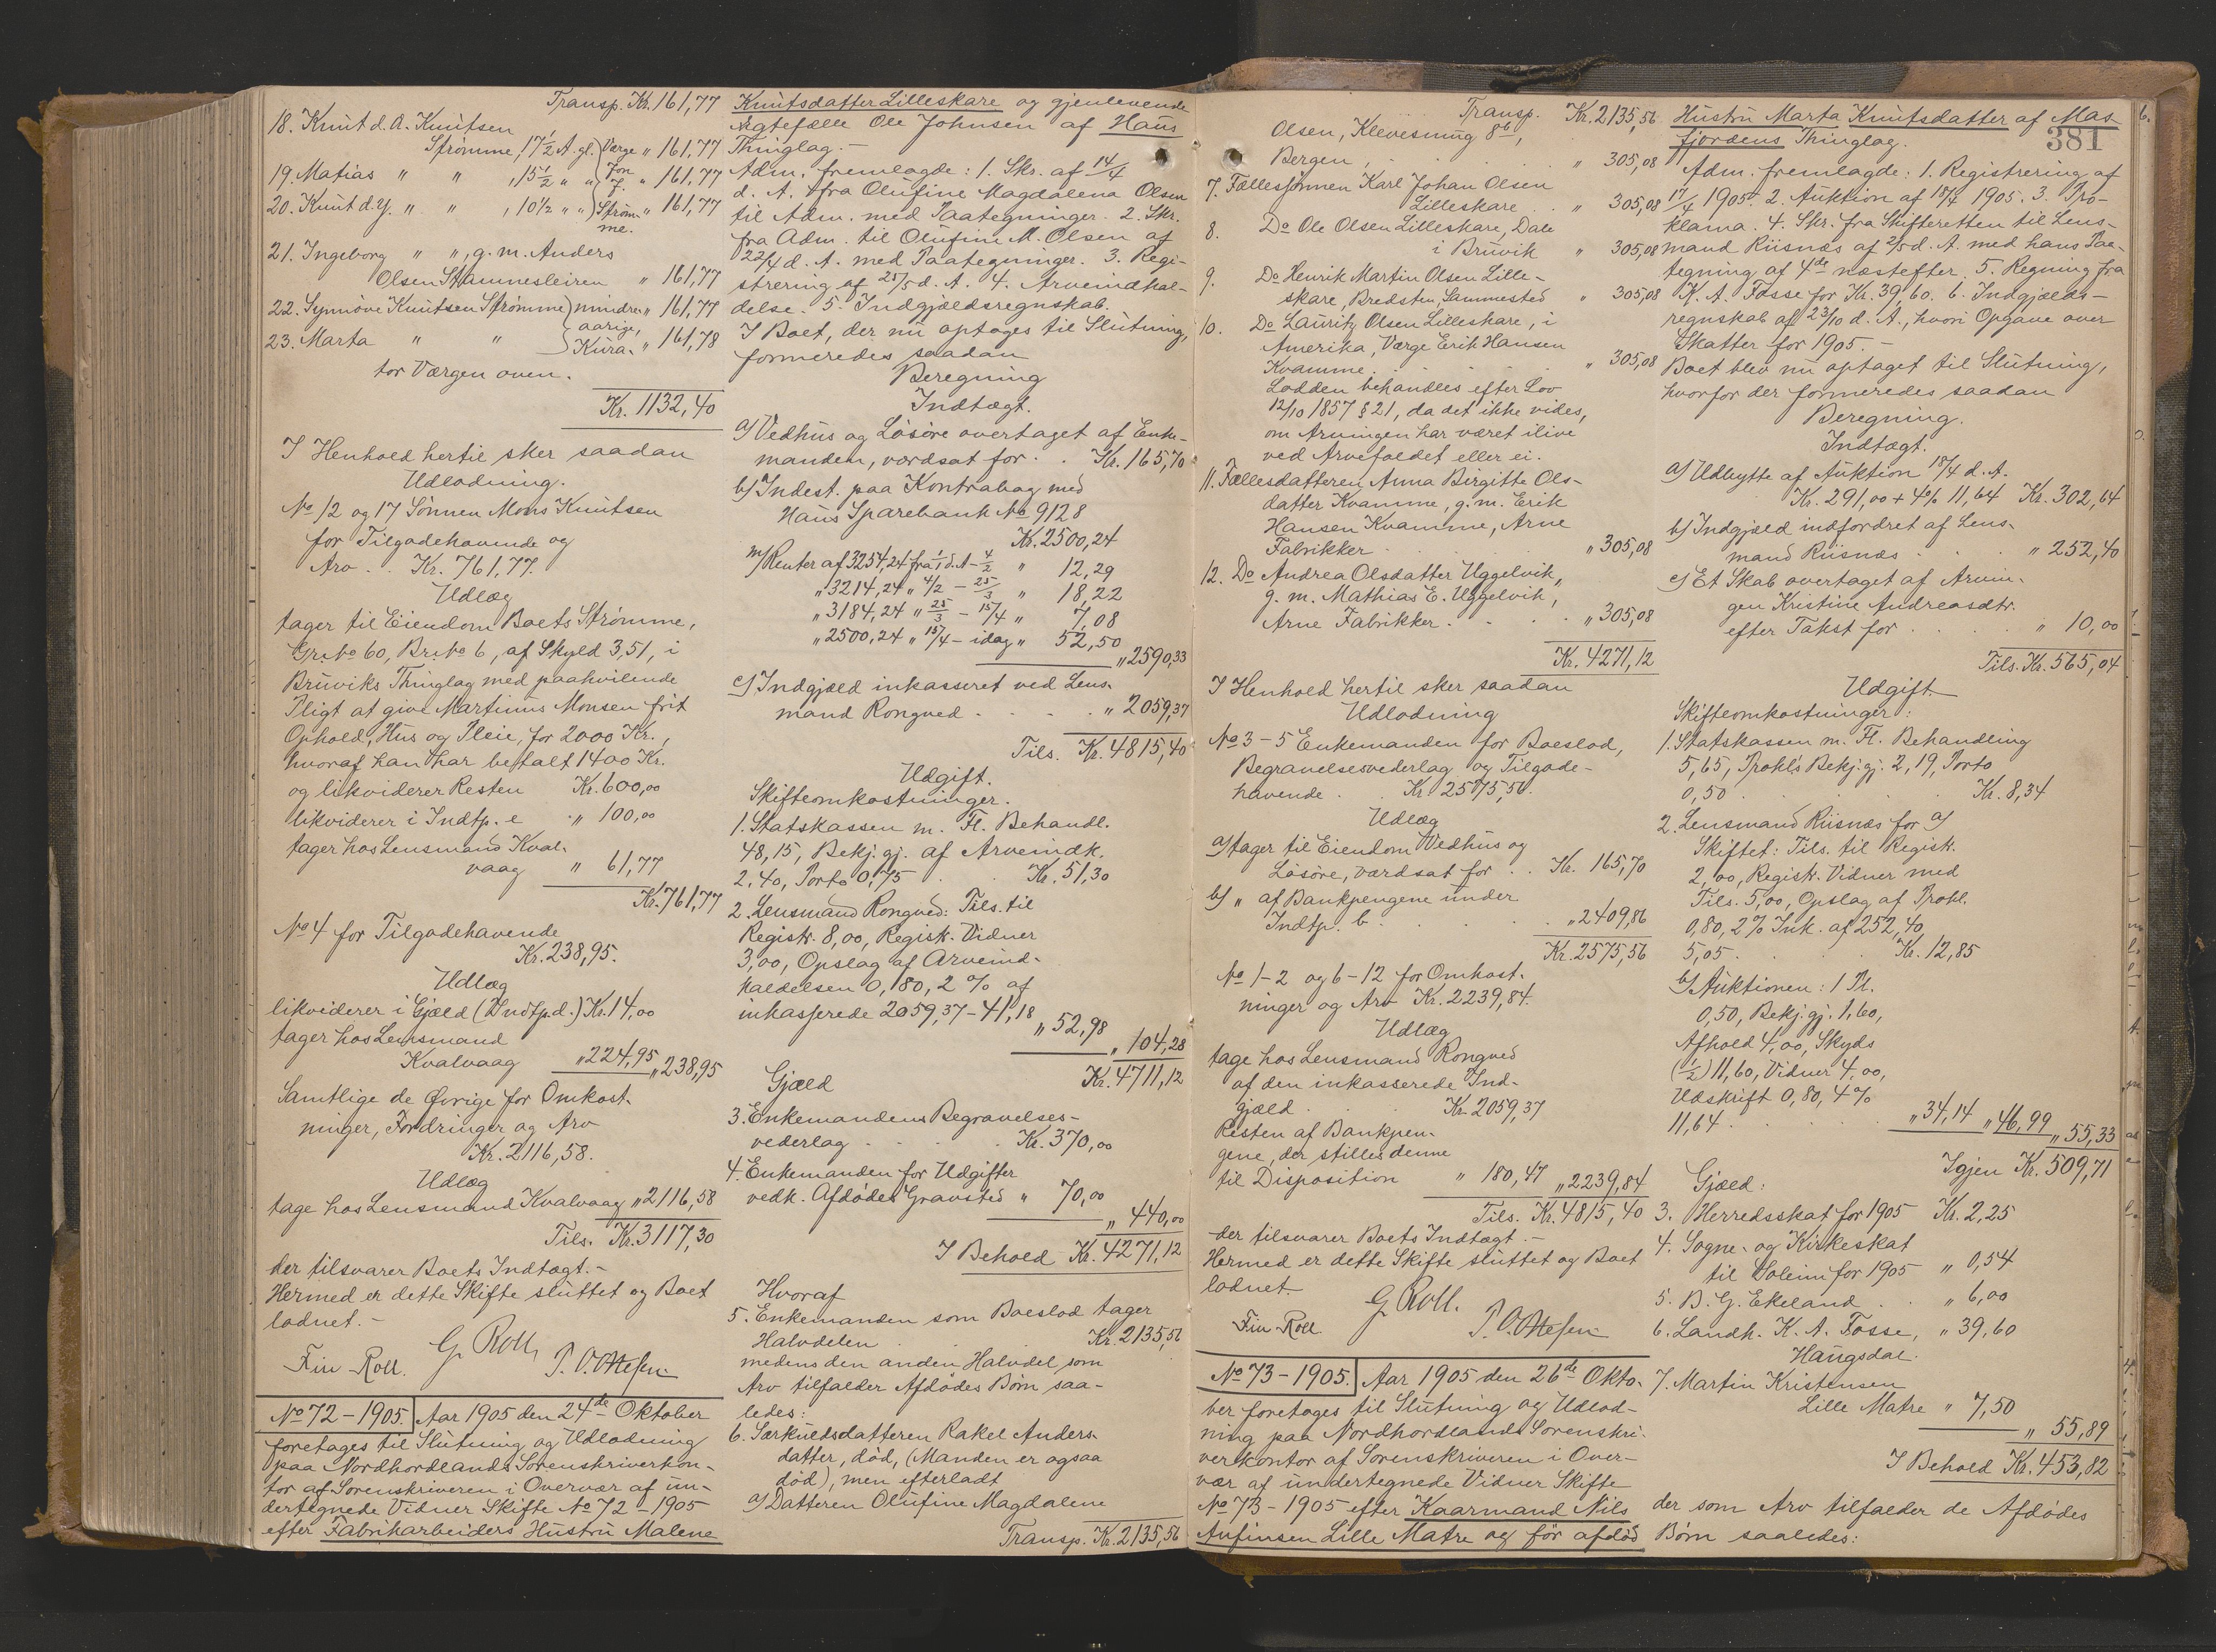 Transp. Kr. 161,77
18. Knut d. A. Knutsen
Strømme, 17½ A. gl. } Værge " 161,77
19. Matias " " , 15½ " " } Jon J. " 161,77
20. Knut d. y. " " , 10½ " " } Strøm- " 161,77
me.
21. Ingeborg " ", g. m. Anders
Olsen Stamnesleiren " 161,77
22. Synnöve Knutsen Strømme } mindre- " 161,77
aarige,
23. Marta " " } Kura- " 161,78
tor Værgen oven.
Kr. 1132,40
I Henhold hertil sker saadan
Udlodning.
No 12 og 17 Sönnen Mons Knutsen
for Tilgodehavende og
Arv . . Kr. 761,77.
Udlæg
tager til Eiendom Boets Strømme,
Gr. No 60, Br. No 6, af Skyld 3,51, i
Bruviks Thinglag med paahvilende
Pligt at give Martinus Monsen frit
Ophold, Hus og Pleie, for 2000 Kr.,
hvoraf han har betalt 1400 Kr.
og likviderer Resten Kr. 600,00
likviderer i Indtp. e " 100,00
tager hos Lensmand Kval-
vaag " 61,77
Kr. 761,77
No 4 for Tilgodehavende
Kr. 238,95.
Udlæg
likviderer i Gjæld (Indtp. d.) Kr. 14,00
tager hos Lensmand
Kvalvaag " 224,95 " 238,95
Samtlige de Øvrige for Omkost-
ninger, Fordringer og Arv
Kr. 2116,58.
Udlæg
tage hos Lensmand Kvalvaag " 2116,58
Tils. Kr. 3117,30
der tilsvarer Boets Indtægt. –
Hermed er dette Skifte sluttet og Boet
lodnet. –
G. Roll
Fin Roll. P. O. Ottesen
No 72 – 1905. Aar 1905 den 24de Oktober
foretages til Slutning og Udlodning
paa Nordhordlands Sorenskriverkon-
tor af Sorenskriveren i Overvær af un-
dertegnede Vidner Skifte No 72 – 1905
efter Fabrikarbeiders Hustru Malene
Knutsdatter Lilleskare og gjenlevende
Ægtefælle Ole Johnsen af Haus
Thinglag. –
Adm. fremlagde: 1. Skr. af 14/4
d. A. fra Olufine Magdalena Olsen
til Adm. med Paategninger. 2. Skr.
fra Adm. til Olufine M. Olsen af
22/4 d. A. med Paategninger. 3. Regi-
strering af 25/5 d. A. 4. Arveindkal-
delse. 5. Indgjældsregnskab.
I Boet, der nu optages til Slutning,
formeredes saadan
Beregning
Indtægt.
a) Vedhus og Løsöre overtaget af Enke-
manden, værdsat for . . Kr. 165,70
b) Indest. paa Kontrabog med
Haus Sparebank No 9128
Kr. 2500,24
m/ Renter af 3254,24 fra 1/1 d. A – 4/2 " 12,29
" 3214,24 " 4/2 – 25/3 " 18,22
" 3184,24 " 25/3 – 15/4 " 7,08
" 2500,24 " 15/4 – idag " 52,50
" 2590,33
c) Indgjæld inkasseret ved Lens-
mand Rongved . . . . " 2059,37
Tils. Kr. 4815,40
Udgift.
Skifteomkostninger.
1. Statskassen m. Fl. Behandl.
48,15, Bekj. gj. af Arveindk.
2,40, Porto 0,75 . . Kr. 51,30
2. Lensmand Rongved: Tils. til
Registr. 8,00, Registr. Vidner
3,00, Opslag af Arveind-
kaldelsen 0,80, 2 % af
inkasserede 2059,37 – 41,18
" 52,98 " 104,28
Kr. 4711,12
Gjæld
3. Enkemandens Begravelses-
vederlag . . . . Kr. 370,00
4. Enkemanden for Udgifter
vedk. Afdødes Gravsted " 70,00
" 440,00
I Behold Kr. 4271,12
Hvoraf
5. Enkemanden som Boeslod tager
Halvdelen . . . Kr. 2135,56
medens den anden Halvdel som
Arv tilfalder Afdødes Børn saa-
ledes:
6. Særkuldsdatteren Rakel Anders-
datter, død, (Manden er ogsaa
død), men efterladt
a) Datteren Olufine Magdalene
Transp. Kr. 2135,56
Transp. Kr. 2135,56
Olsen, Klevesmug 8b,
Bergen, . . . . " 305,08
7. Fællessönnen Karl Johan Olsen
Lilleskare . . " 305,08
8. Do Ole Olsen Lilleskare, Dale
i Bruvik " 305,08
9. Do Henrik Martin Olsen Lille-
skare, Bredsten, Sammested " 305,08
10. Do Lauritz Olsen Lilleskare, i
Amerika, Værge Erik Hansen
Kvamme . . . . " 305,08
Lodden behandles efter Lov
12/10 1857 § 21, da det ikke vides,
om Arvingen har været ilive
ved Arvefaldet eller ei.
11. Fællesdatteren Anna Birgitte Ols-
datter Kvamme, g. m. Erik
Hansen Kvamme, Arne
Fabrikker . . . . " 305,08
12. Do Andrea Olsdatter Uggelvik,
g. m. Mathias E. Uggelvik,
Arne Fabrikker . . . " 305,08
Kr. 4271,12
I Henhold hertil sker saadan
Udlodning
No 3 – 5 Enkemanden for Boeslod,
Begravelsesvederlag og Tilgode-
havende . . Kr. 2575,56.
Udlæg
a) tager til Eiendom Vedhus og
Løsöre, værdsat for . . Kr. 165,70
b) " af Bankpengene under
Indtp. b . . . . " 2409,86
Kr. 2575,56
No 1 – 2 og 6 – 12 for Omkost-
ninger og Arv Kr. 2239,84.
Udlæg
tage hos Lensmand Rongved
af den inkasserede Ind-
gjæld . . . Kr. 2059,37
Resten af Bankpen-
gene, der stilles denne
til Disposition " 180,47 " 2239,84
Tils. Kr. 4815,40
der tilsvarer Boets Indtægt. –
Hermed er dette Skifte sluttet og Boet
lodnet.
G. Roll.
Fin Roll P. O. Ottesen
No 73 – 1905. Aar 1905 den 26de Okto-
ber foretages til Slutning og Udlod-
ning paa Nordhordlands Sorenskri-
verkontor af Sorenskriveren i Over-
vær af undertegnede Vidner Skifte
No 73 – 1905 efter Kaarmand Nils
Anfinsen Lille Matre og før afdød
Hustru Marta Knutsdatter af Mas-
fjordens Thinglag.
381
Adm. fremlagde: 1. Registrering af
17/4 1905. 2. Auktion af 18/4 1905. 3. Pro-
klama. 4. Skr. fra Skifteretten til Lens-
mand Riisnæs af 2/5 d. A. med hans Paa-
tegning af 4de næstefter. 5. Regning fra
K. A. Fosse for Kr. 39,60. 6. Indgjælds-
regnskab af 23/10 d. A., hvori Opgave over
Skatter for 1905. –
Boet blev nu optaget til Slutning,
hvorfor der formeredes saadan
Beregning.
Indtægt.
a) Udbytte af Auktion 18/4 d. A.
Kr. 291,00 + 4% 11,64 Kr. 302,64
b) Indgjæld indfordret af Lens-
mand Riisnæs . . . " 252,40
c) Et Skab overtaget af Arvin-
gen Kristine Andreasdtr.
efter Takst for . . . " 10,00
Tils. Kr. 565,04
Udgift
Skifteomkostninger:
1. Statskassen m. Fl. Behandling
5,65, Prokl's Bekj. gj. 2,19, Porto
0,50 . . . . Kr. 8,34
2. Lensmand Riisnæs for a)
Skiftet: Tils. til Registr.
2,00, Registr. Vidner med
Tils. 5,00, Opslag af Prokl.
0,80, 2 % Ink. af 252,40,
5,05 . . . Kr. 12,85
b) Auktionen: 1 Pl.
0,50, Bekj. gj. 1,60,
Afhold 4,00, Skyds
(½) 11,60, Vidner 4,00,
Udskrift 0,80, 4 %
11,64 . . . " 34,14 " 46,99 " 55,33
Igjen Kr. 509,71
Gjæld:
3. Herredsskat for 1905 Kr. 2,25
4. Sogne- og Kirkeskat
til Soleim for 1905 " 0,54
5. B. G. Ekeland . . " 6,00
6. Landh. K. A. Fosse, " 39,60
Haugsdal.
7. Martin Kristensen
Lille Matre " 7,50
" 55,89
I Behold Kr. 453,82
der som Arv tilfalder de Afdødes
Børn saaledes: